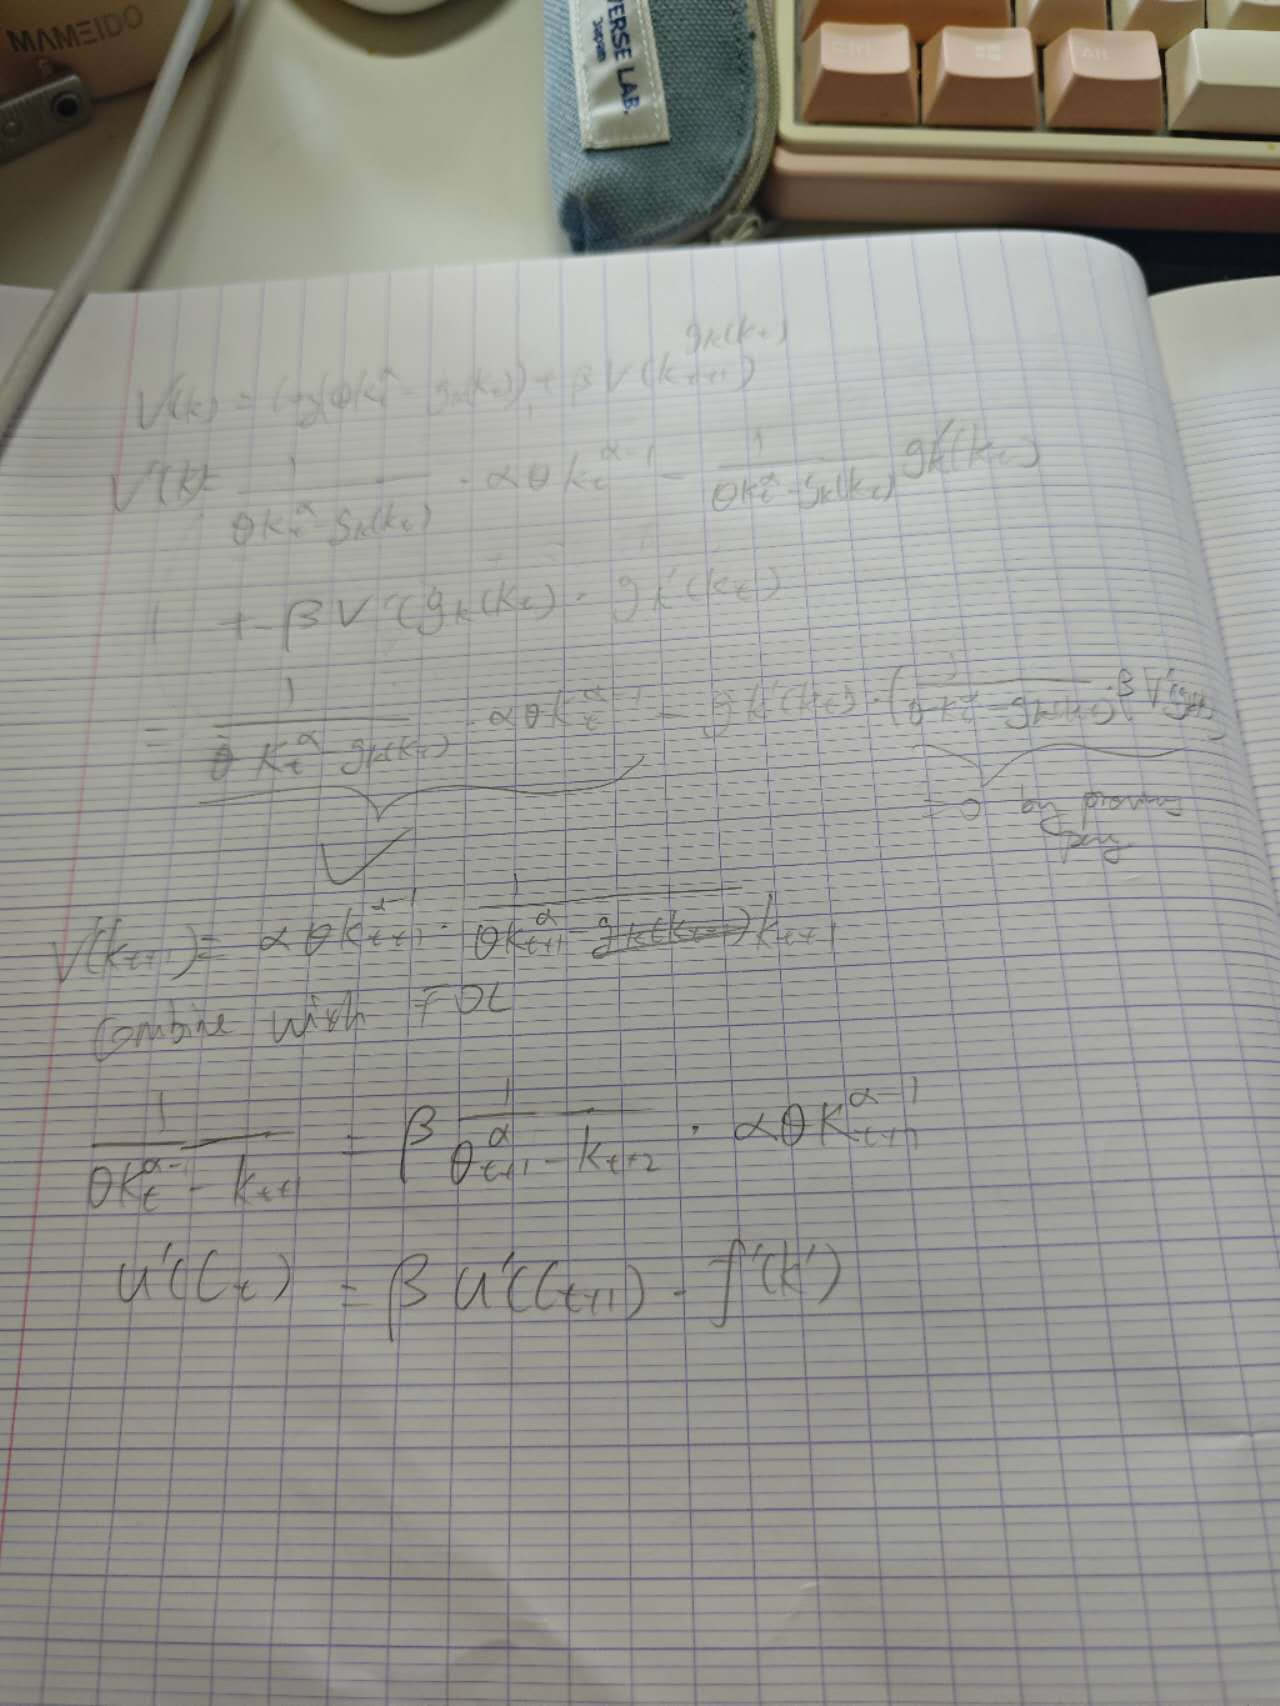 MAMEIDO
VERSE LAB.
Japan
Ctrl
Alt
g_k(k_t)
V(k) = log(θk_t^α - g_k(k_t)) + β V(k_{t+1})
V'(k) = 1/(θk_t^α - g_k(k_t)) · αθk_t^{α-1} - 1/(θk_t^α - g_k(k_t)) g_k'(k_t)
+ β V'(g_k(k_t) · g_k'(k_t)
= 1/(θk_t^α - g_k(k_t)) · αθk_t^{α-1} - g_k'(k_t) · (1/(θk_t^α - g_k(k_t)) · β V'(
= 0 by
V'(k_{t+1}) = αθk_{t+1}^{α-1} · 1/(θk_{t+1}^α - k_{t+1}
Combine with FOC
1/(θk_t^{α-1} - k_{t+1}) = β 1/(θ_{t+1}^α - k_{t+2}) · αθk_{t+1}^{α-1}
u'(C_t) = β u'(C_{t+1}) - f'(k')